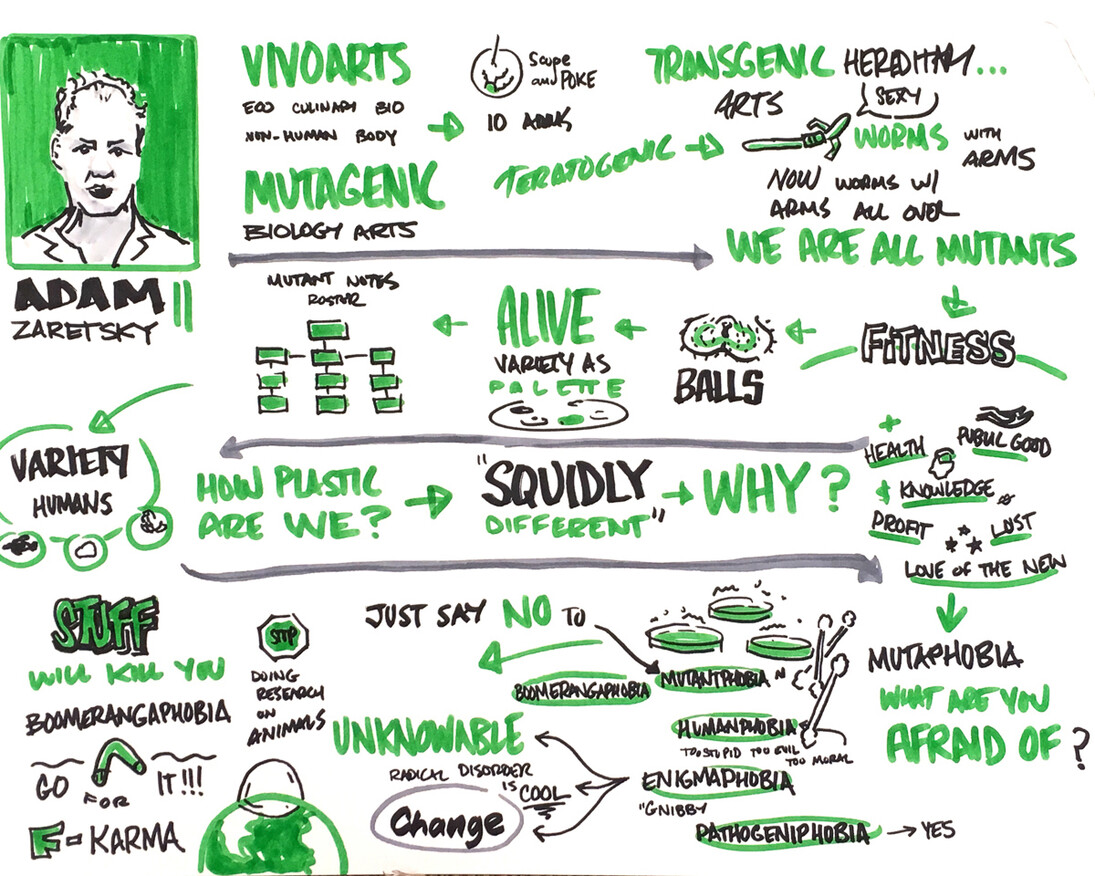 ADAM
ZARETSKY
VIVOARTS
CULINARY BIO
NON-HUMAN BODY
MUTAGENIC
BIOLOGY ARTS
and POKE
10
TERATOGENIC
TRANSGENIC
ARTS
SEXY
WORMS WITH
ARMS
NOW WORMS W/
ARMS ALL OVER
WE ARE ALL MUTANTS
FITNESS
BALLS
ALIVE
VARIETY AS
PALETTE
MUTANT NOTES
ROSTER
VARIETY
HUMANS
HOW PLASTIC
ARE WE?
"SQUIDLY
DIFFERENT"
WHY?
HEALTH
PUBLIC GOOD
KNOWLEDGE
PROFIT
LUST
LOVE OF THE NEW
MUTAPHOBIA
WHAT ARE YOU
AFRAID OF?
JUST SAY NO TO
MUTANTPHOBIA
BOOMERANGAPHOBIA
HUMANPHOBIA
TOO STUPID TOO EVIL
TOO MORAL
ENIGMAPHOBIA
"GNIBBY
PATHOGENIPHOBIA → YES
UNKNOWABLE
RADICAL DISORDER
IS COOL
Change
STOP
DOING
RESEARCH
ON
ANIMALS
STUFF
WILL KILL YOU
BOOMERANGAPHOBIA
GO FOR IT!!!
F = KARMA